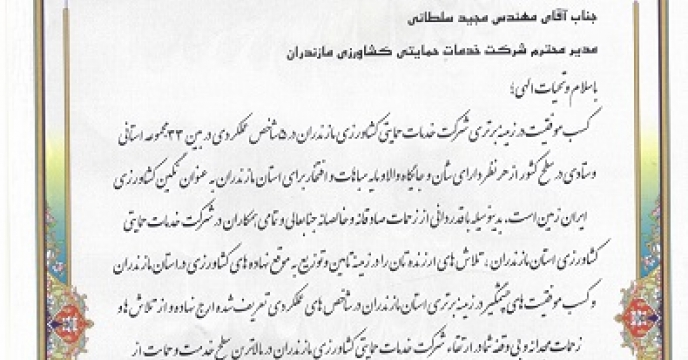 جناب آقای مهندس مجید سلطانی
مدیر محترم شرکت خدمات حمایتی کشاورزی مازندران
باسلام و تحیات الهی؛
کسب موفقیت در زمینه برتری شرکت خدمات حمایتی کشاورزی مازندران در ۵ شاخص عملکردی در بین ۳۳ مجموعه استانی
و ستادی در سطح کشور از هر نظر دارای شأن و جایگاه والا و مایه مباهات و افتخار برای استان مازندران به عنوان نگین کشاورزی
ایران زمین است. بدینوسیله با قدردانی از زحمات صادقانه و خالصانه جنابعالی و تمامی همکاران در شرکت خدمات حمایتی
کشاورزی استان مازندران، تلاش های ارزنده تان را در زمینه تامین و توزیع به موقع نهاده های کشاورزی در استان مازندران
و کسب موفقیت های چشمگیر در زمینه برتری استان مازندران در شاخص های عملکردی تعریف شده ارج نهاده و از تلاش ها و
زحمات مجدانه و بی وقفه شما در ارتقاء شرکت خدمات حمایتی کشاورزی مازندران در بالاترین سطح خدمت و حمایت از